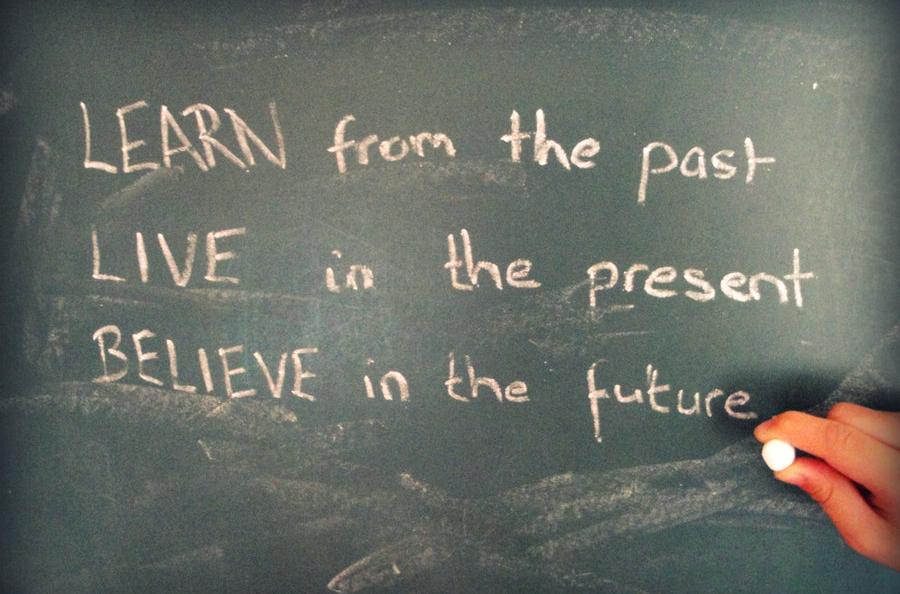 LEARN from the past
LIVE in the present
BELIEVE in the future